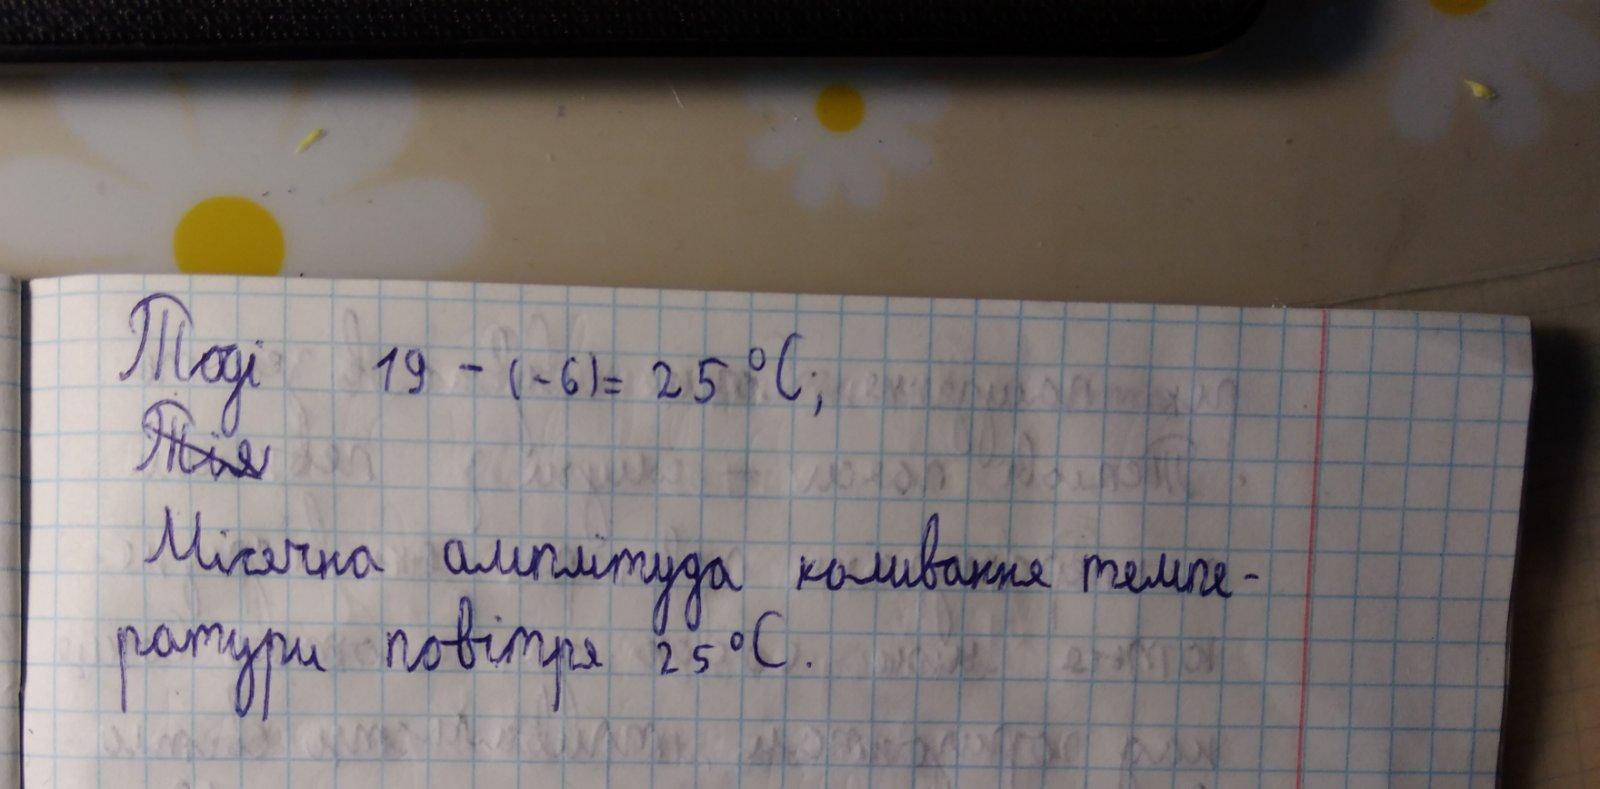 Тоді 19 - (-6) = 25 °C;
Місячна амплітуда коливання темпе-
ратури повітря 25 °C.